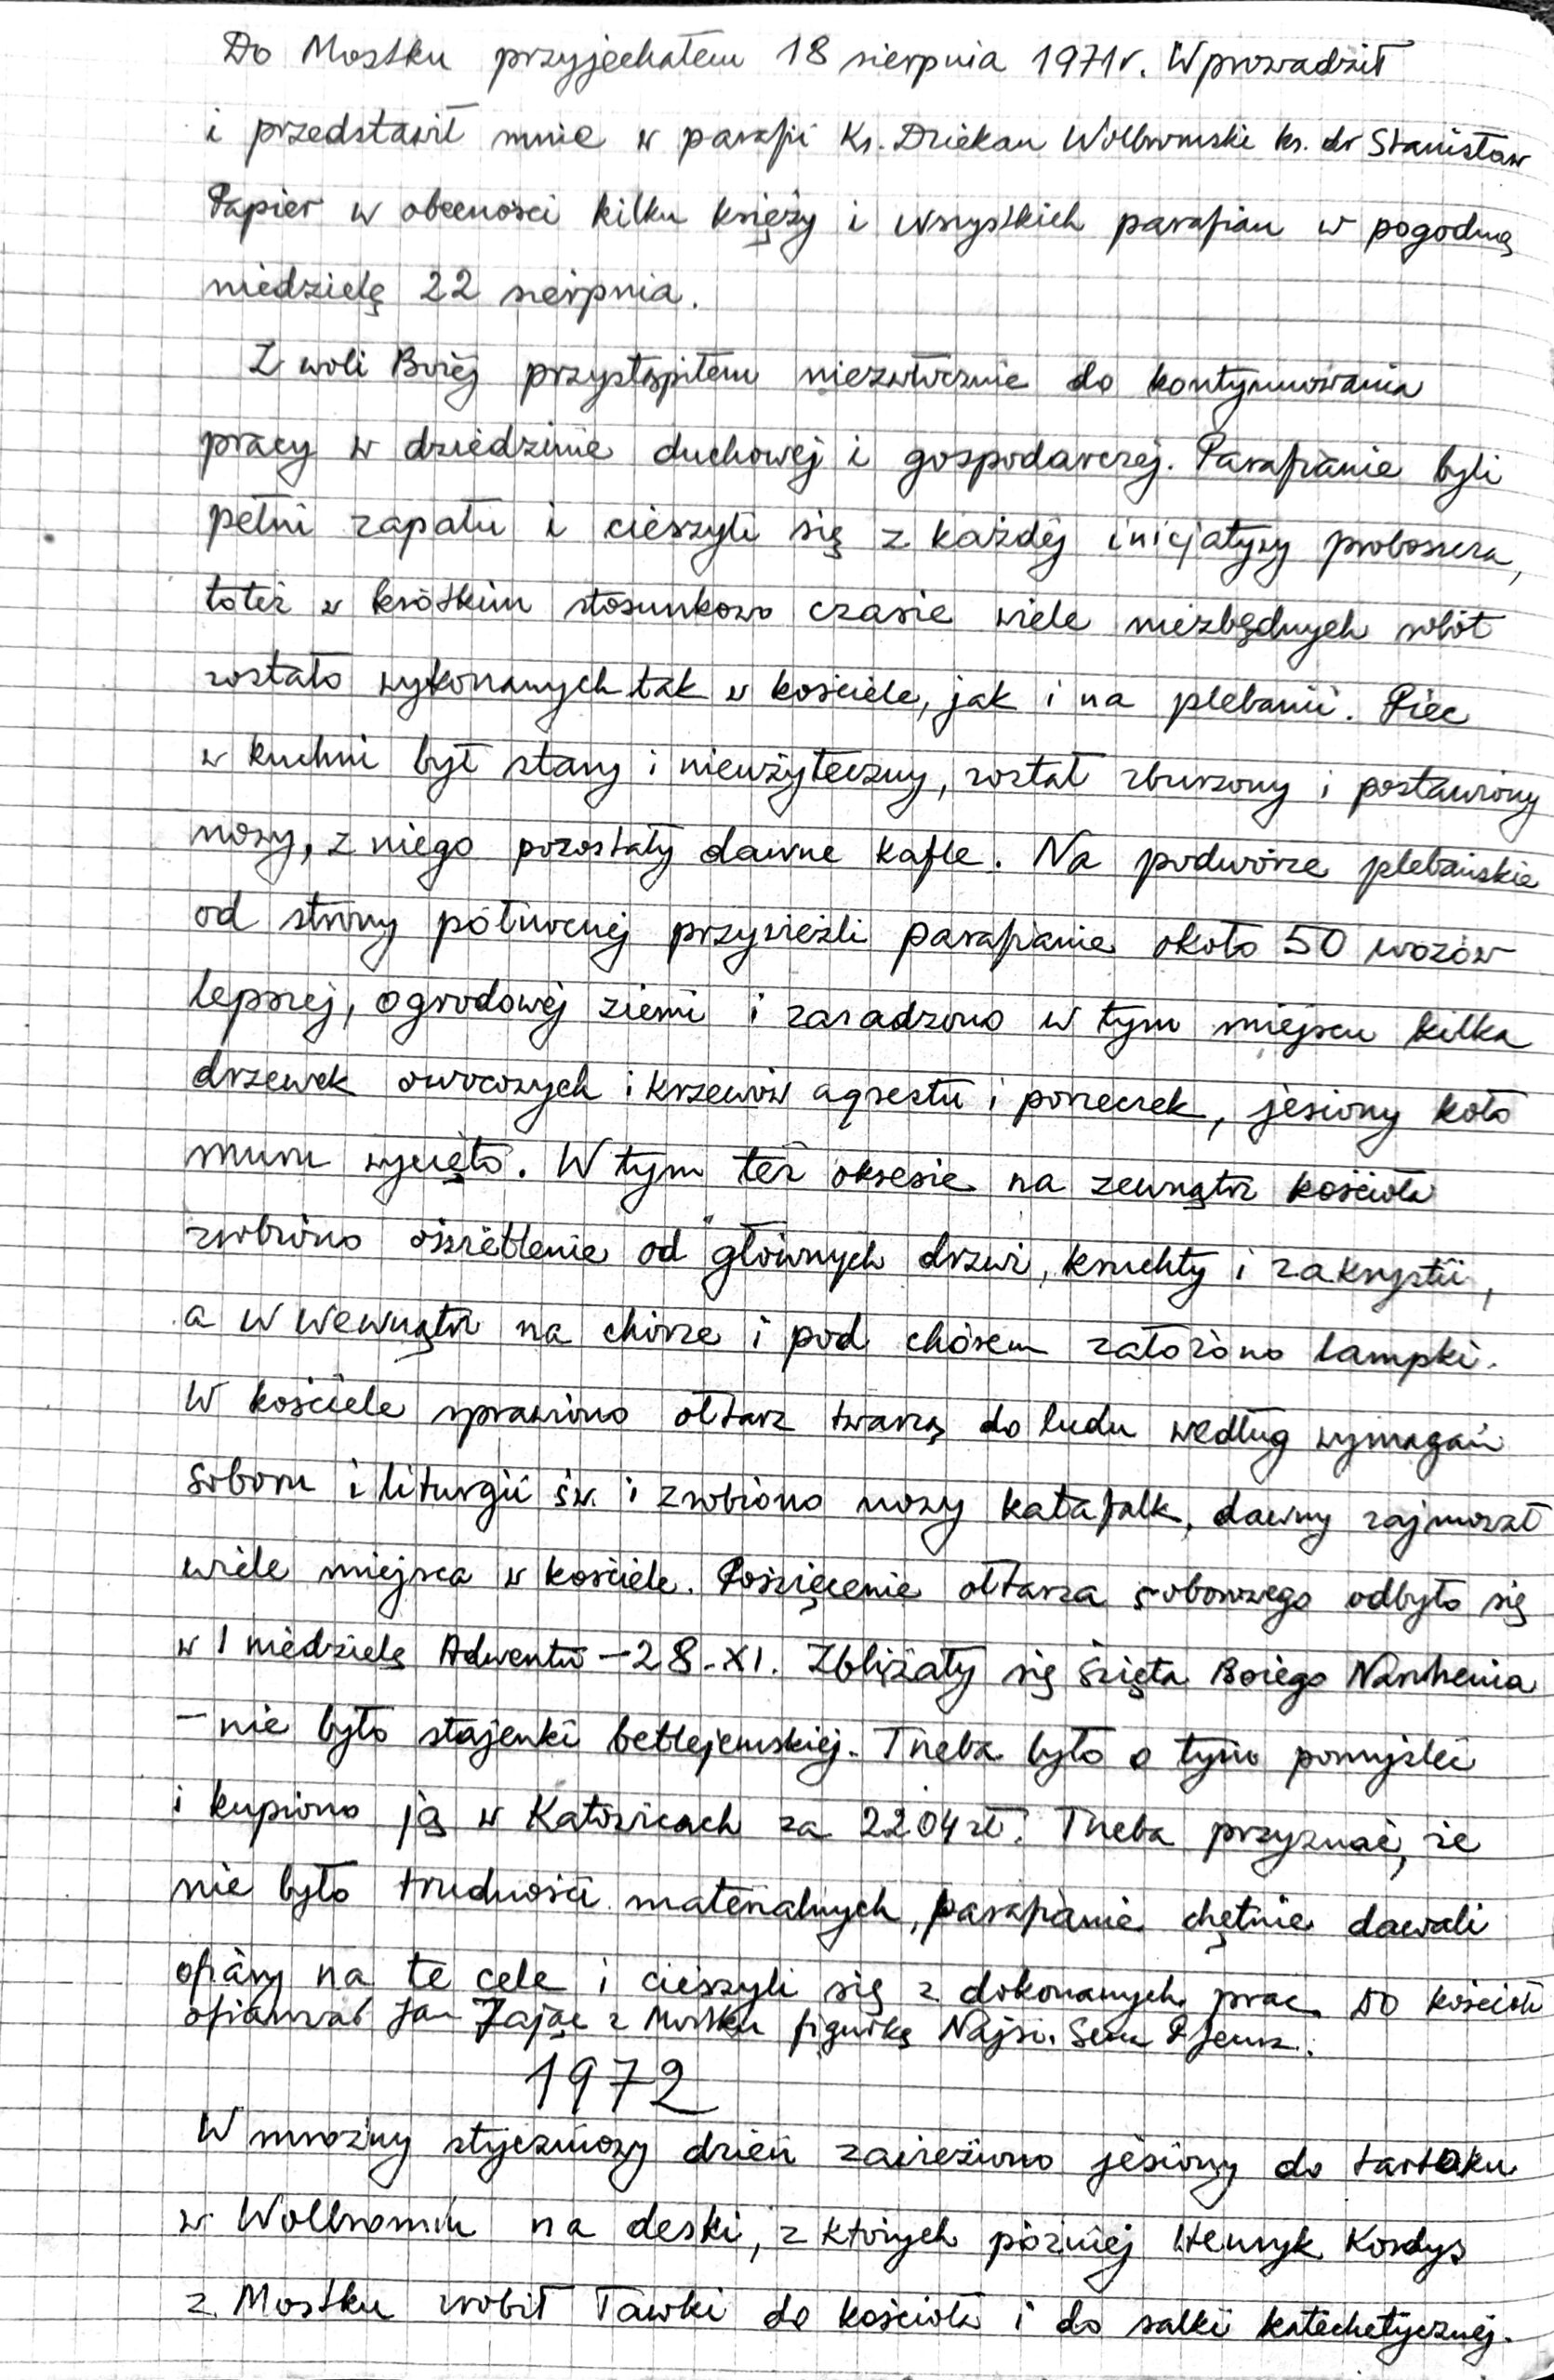 Do Mostku przyjechałem 18 sierpnia 1971r. Wprowadził
i przedstawił mnie w parafii Ks. Dziekan Wolbromski ks. dr Stanisław
Papier w obecności kilku księży i wszystkich parafian w pogodną
niedzielę 22 sierpnia.
Z woli Bożej przystąpiłem niezwłocznie do kontynuowania
pracy w dziedzinie duchowej i gospodarczej. Parafianie byli
pełni zapału i cieszyli się z każdej inicjatywy proboszcza,
toteż w krótkim stosunkowo czasie wiele niezbędnych robót
zostało wykonanych tak w kościele, jak i na plebanii. Piec
w kuchni był stary i nieużyteczny, został zburzony i postawiony
nowy, z niego pozostały dawne kafle. Na podwórze plebańskie
od strony północnej przywieźli parafianie około 50 wozów
lepszej, ogrodowej ziemi i zasadzono w tym miejscu kilka
drzewek owocowych i krzewów agrestu i porzeczek, jesiony koło
muru wycięto. W tym też okresie na zewnątrz kościoła
zrobiono oświetlenie od głównych drzwi, kruchty i zakrystii,
a w wewnątrz na chórze i pod chórem założono lampki.
W kościele sprawiono ołtarz twarzą do ludu według wymagań
soboru i liturgii św. i zrobiono nowy katafalk, dawny zajmował
wiele miejsca w kościele. Poświęcenie ołtarza soborowego odbyło się
w I niedzielę Adwentu - 28.XI. Zbliżały się święta Bożego Narodzenia
- nie było stajenki betlejemskiej. Trzeba było o tym pomyśleć
i kupiono ją w Katowicach za 2204 zł. Trzeba przyznać, że
nie było trudności materialnych, parafianie chętnie dawali
ofiary na te cele i cieszyli się z dokonanych prac. Do kościoła
ofiarował Jan Zając z Mostku figurkę Najśw. Serca P. Jezusa.
1972
W mroźny styczniowy dzień zawieziono jesiony do tartaku
w Wolbromiu na deski, z których później Henryk Kordys
z Mostku zrobił ławki do kościoła i do salki katechetycznej.